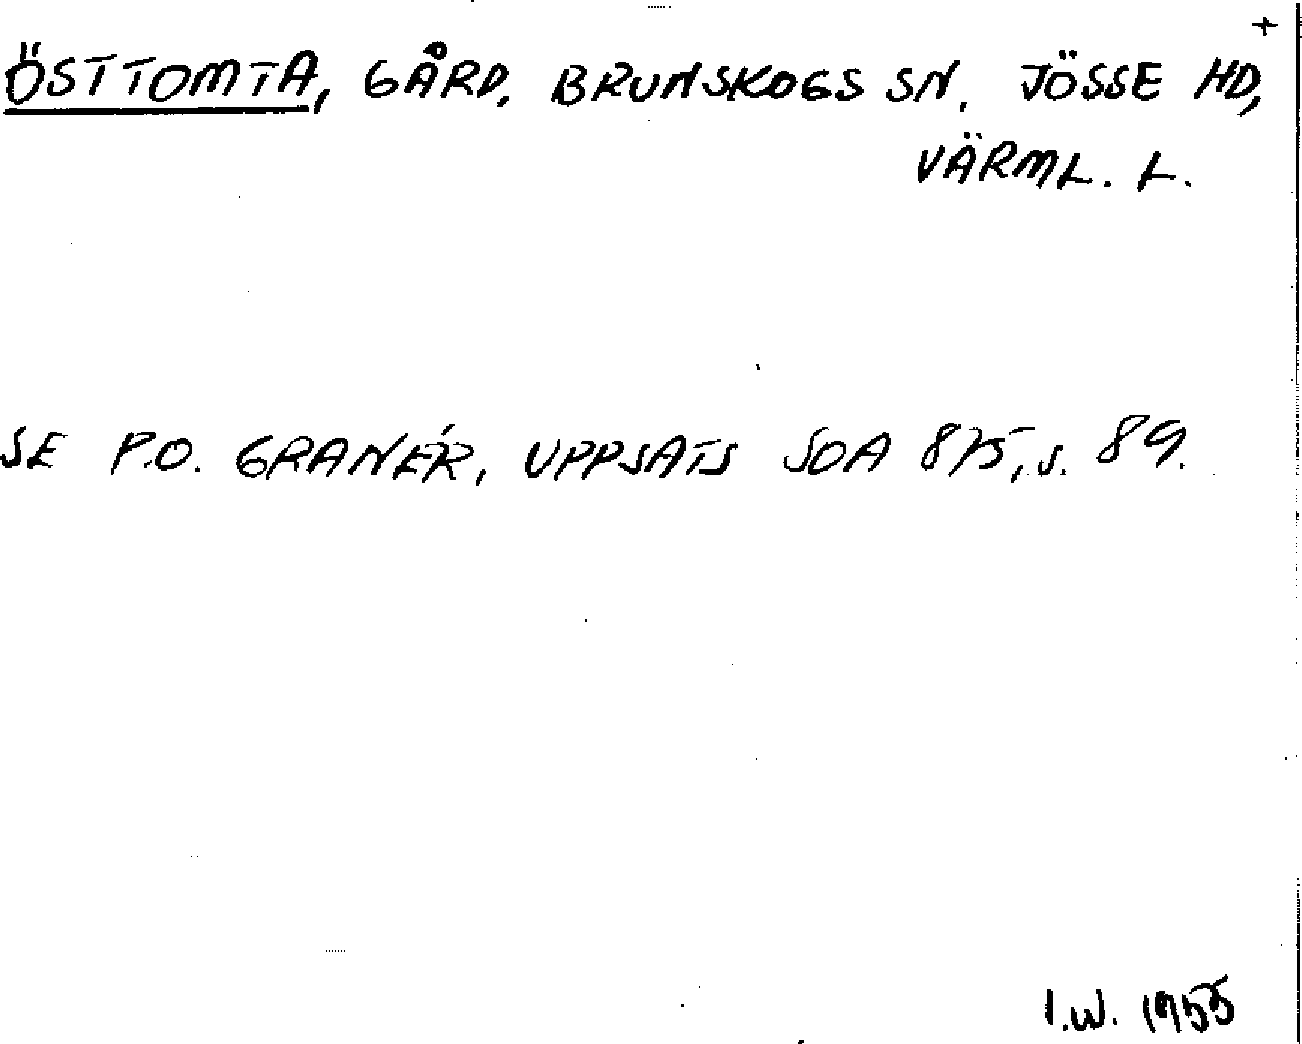 +
ÖSTTOMTA, GÅRD, BRUNSKOGS SN, JÖSSE HD,
VÄRML. L.
SE P.O. GRANÉR, UPPSATS SOA 875, S. 89.
I.W. 1955